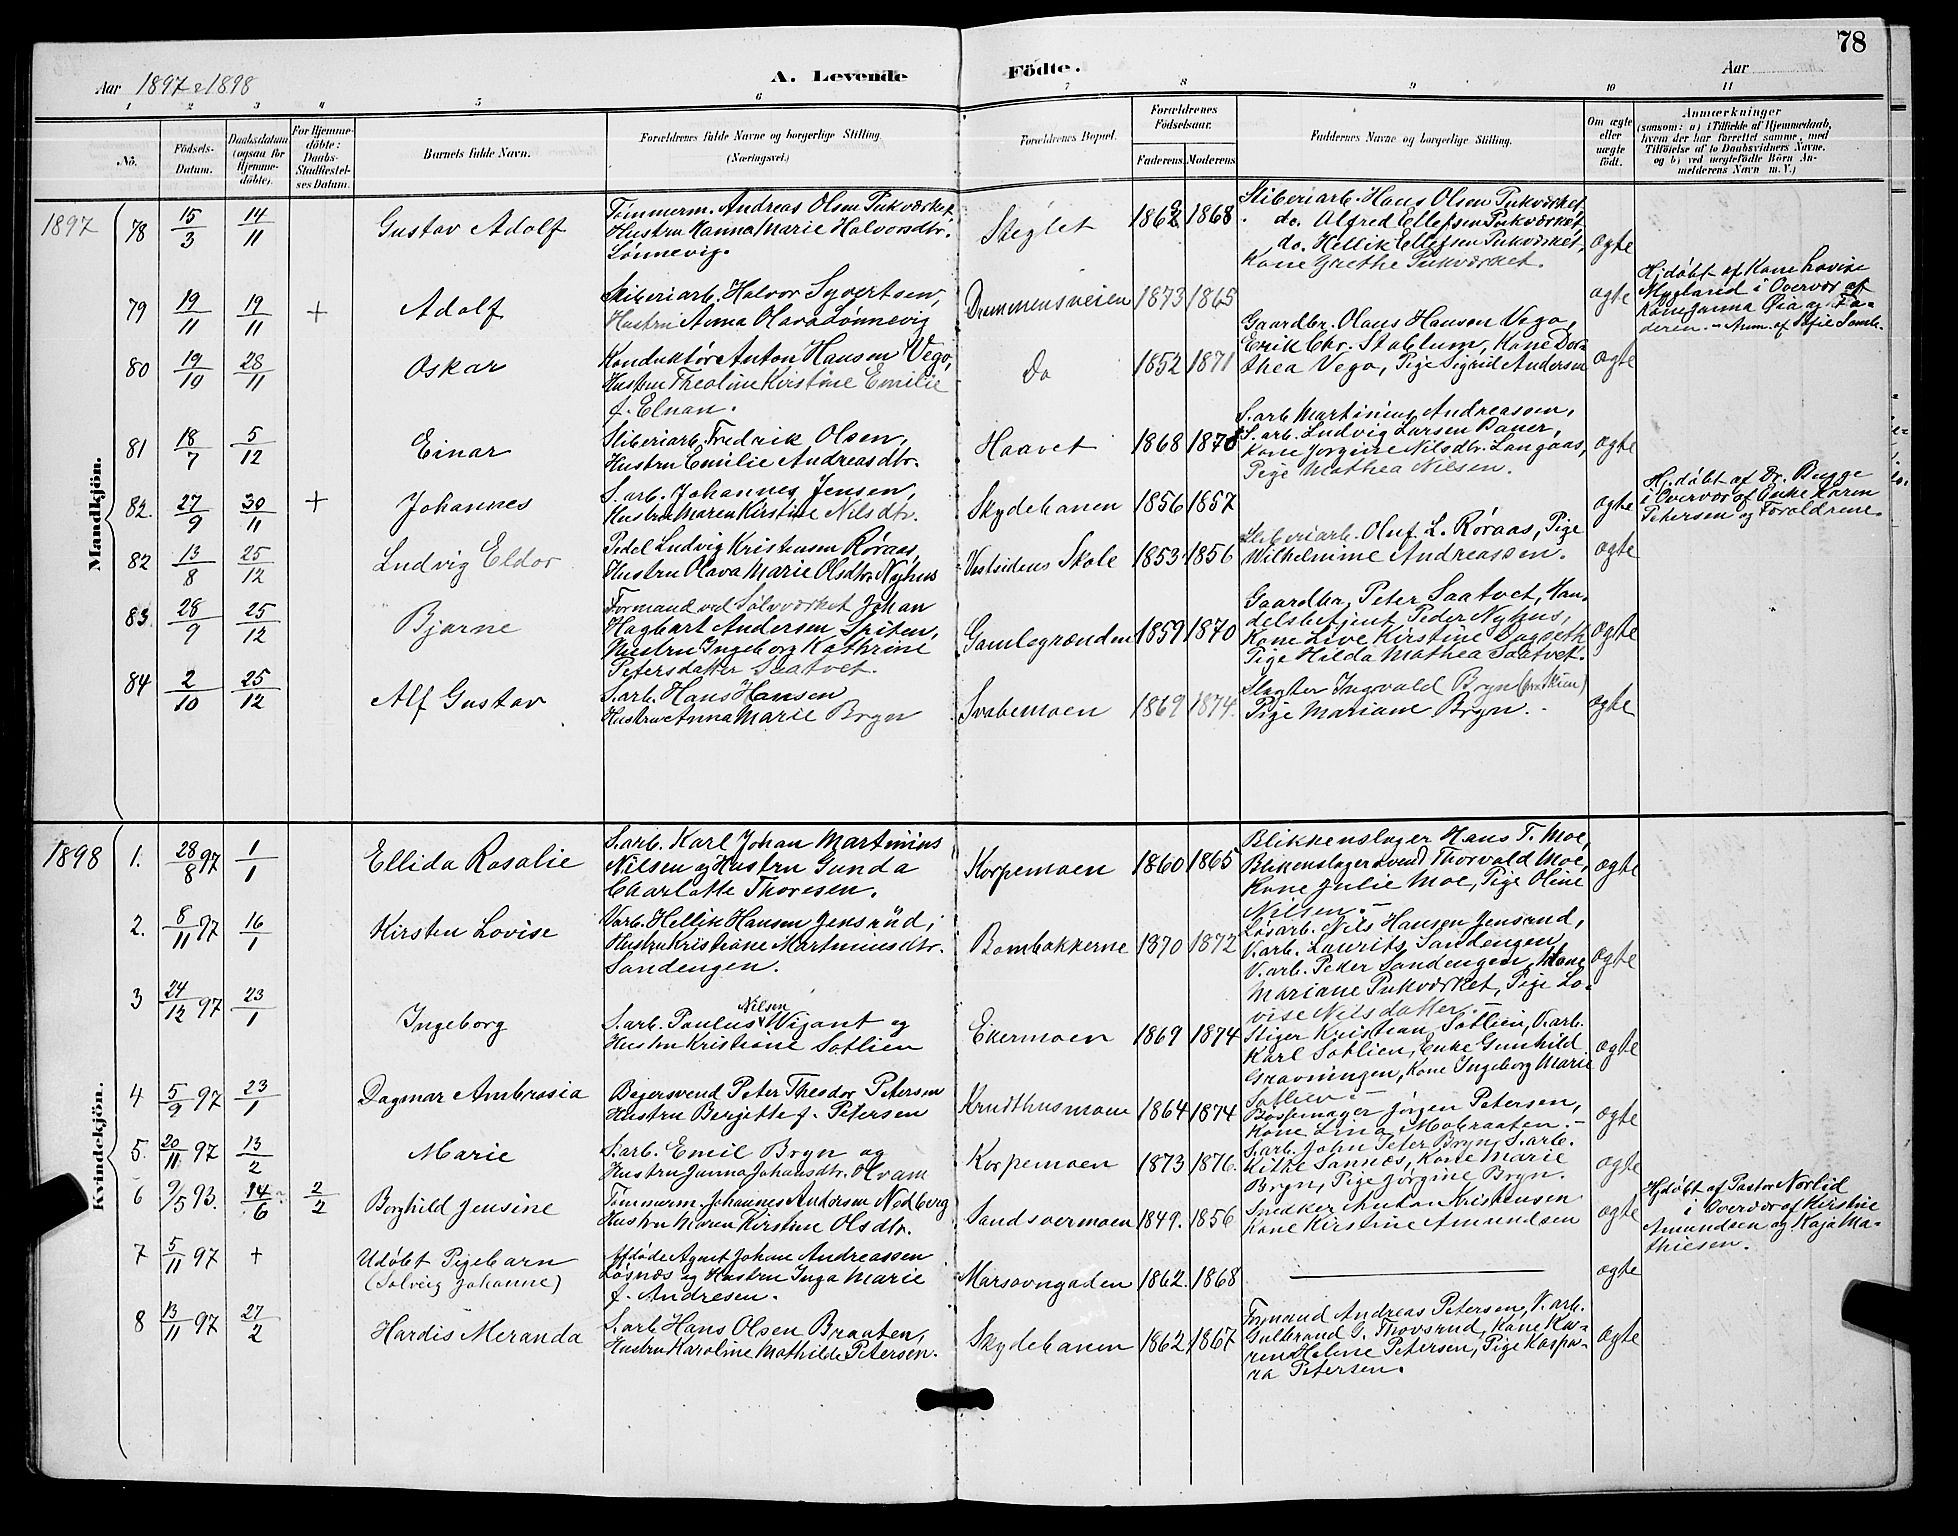 78
Aar 1897 & 1898
A. Levende Födte.
Aar
1 2 3 4 5 6 7 8 9 10 11
No.
Födsels-Datum.
Daabsdatum (ogsaa for Hjemmedöbte).
For Hjemmedöbte: Daabs-Stadfæstelses Datum.
Barnets fulde Navn.
Forældrenes fulde Navne og borgerlige Stilling. (Næringsvei.)
Forældrenes Bopæl.
Forældrenes Födselsaar.
Faderens Moderens
Faddernes Navne og borgerlige Stilling.
Om ægte eller uægte födt.
Anmærkninger
(saasom: a) i Tilfælde af Hjemmedaab,
hvem der har forrettet samme, med
Tilföielse af to Daabsvidners Navne,
og b) ved uægtefödte Börn An-
melderens Navn m. V.)
1897
Mandkjön.
78 15/3 14/11 Gustav Adolf
Tømmerm. Andreas Olsen Pukværket,
Hustru Hanna Marie Halvorsdtr.
Lønnevig.
Steglet 1862 1868
Stiberiarb. Hans Olsen Pukværket
do. Alfred Ellefsen Pukværket,
do. Hellik Ellefsen Pukværket,
Kone Grethe Pukværket.
ægte
79 19/11 19/11 + Adolf
Stiberiarb. Halvor Syvertsen,
Hustru Anna Olava Lønnevig
Drammensveien 1873 1865
ægte
Hjdøbt af Kone Lovise
Myglarud i Overvær af
Kone Janna Pia og Fa-
deren. - Anm. af Sofie
80 19/10 28/11 Oskar
Konduktør Anton Hansen Vego,
Hustru Theoline Kirstine Emilie
f. Elnan.
Do 1852 1871
Gaardbr. Olaus Hansen Vego,
Erik Chr. Stablum, Kone Dor-
thea Vego, Pige Sigrid Andersen
ægte
81 18/7 5/12 Einar
Stiberiarb. Fredrik Olsen,
Hustru Emilie Andreasdtr.
Haavet 1868 1870
S.arb. Martinius Andreassen,
S.arb. Ludvig Larsen Bauer,
Kone Jørgine Nilsdtr. Langaas,
Pige Mathea Nilsen.
ægte
82. 27/9 30/11 + Johannes
S.arb. Johannes Jensen,
Hustru Maren Kirstine Nilsdtr.
Skydebanen 1856 1857
ægte
Hjdøbt af Dr. Bugge
i Overvær af Enke Karen
Petersen og Forældrene.
82 13/8 25/12 Ludvig Eldor
Pedel Ludvig Kristensen Røraas,
Hustru Olava Marie Olsdtr. Nyhus
Vestsidens Skole 1853 1856
Stiberiarb. Oluf L. Røraas, Pige
Wilhelmine Andreassen.
ægte
83. 28/9 25/12 Bjarne
Formand ved Sølvværket Johan
Hagbart Andersen Spiten,
Hustru Ingeborg Kathrine
Petersdatter Saatvet.
Gamlegrænden 1859 1870
Gaardbr. Peter Saatvet, Han-
delsbetjent Peder Nyhus,
Kone Live Kirstine Daaseth
Pige Hilda Mathea Saatvet.
ægte
84 2/10 25/12 Alf Gustav
S.arb. Hans Hansen
Hustru Anna Marie Bryn
Svabemoen 1869 1874.
Slagter Ingvald Bryn (fra Skien)
Pige Mariane Bryn.
ægte
1898
Kvindekjön.
1. 28/8 97 1/1 Ellida Rosalie
S.arb. Karl Johan Martinius
Nilsen og Hustru Gunda
Charlotte Thoresen.
Korpemoen 1860 1865
Blikkenslager Hans T. Moe,
Blikenslagersvend Thorvald Moe,
Kone Julie Moe, Pige Oline
Nilsen.
ægte
2. 8/11 97 16/1 Kirsten Lovise
V.arb. Hellik Hansen Jensrud,
Hustru Kristiane Martiniusdtr.
Sandengen.
Bombakkerne 1870 1872
Løsarb. Nils Hansen Jensrud,
V.arb. Laurits Sandengen,
V.arb. Peder Sandengen, Kone
Mariane Pukværket, Pige Lo-
vise Nilsdatter.
ægte
3 24/12 97 23/1 Ingeborg
S.arb. Paulus Nilsen Wigant og
Hustru Kristiane Sotlien
Ekermoen 1869 1874
Stiger Kristian Sotlien, V.arb.
Karl Sotlien, Enke Gunhild
Gravningen, Kone Ingeborg Marie
Sotlien.
ægte
4 5/9 97 23/1 Dagmar Ambrosia
Bøjersvend Peter Theodor Petersen
Hustru Berjette f. Petersen
Krudthusmoen 1864 1874
Børsemager Jørgen Petersen,
Kone Lina Mobraaten.
ægte
5. 20/11 97 13/2 Marie
S.arb. Emil Bryn og
Hustru Janna Johansdtr. Hvam
Korpemoen 1873 1876.
S.arb. John Peter Bryn, S.arb.
Kitke Sannæs, Kone Marie
Bryn, Pige Jørgine Bryn.
ægte
6 9/5 93. 14/6 2/2 Borghild Jensine
Tømmerm. Johannes Andersen Nedberg
Hustru Maren Kirstine Olsdtr.
Sandsværmoen 1849. 1856
Snekker Anton Kristensen
Kone Kirstine Amundsen
ægte
Hjdøbt af Pastor Norlid
i Overvær af Kirstine
Amundsen og Kaja Ma-
thiesen.
7 5/11 97 + Udøbt Pigebarn
(Solveig Johanne)
Afdøde Agent Johan Andreassen
Løsnæs og Hustru Inga Marie
f. Andresen.
Marsovngaden 1862. 1868
ægte
8 13/11 97 27/2 Hardis Meranda
S.arb. Hans Olsen Braaten,
Hustru Karoline Mathilde Petersen.
Skydebanen 1862. 1867
Formand Andreas Petersen, V.arb.
Gulbrand G. Thovsrud, Kone Ka-
ren Helene Petersen, Pige Kaspa-
ra Petersen.
ægte